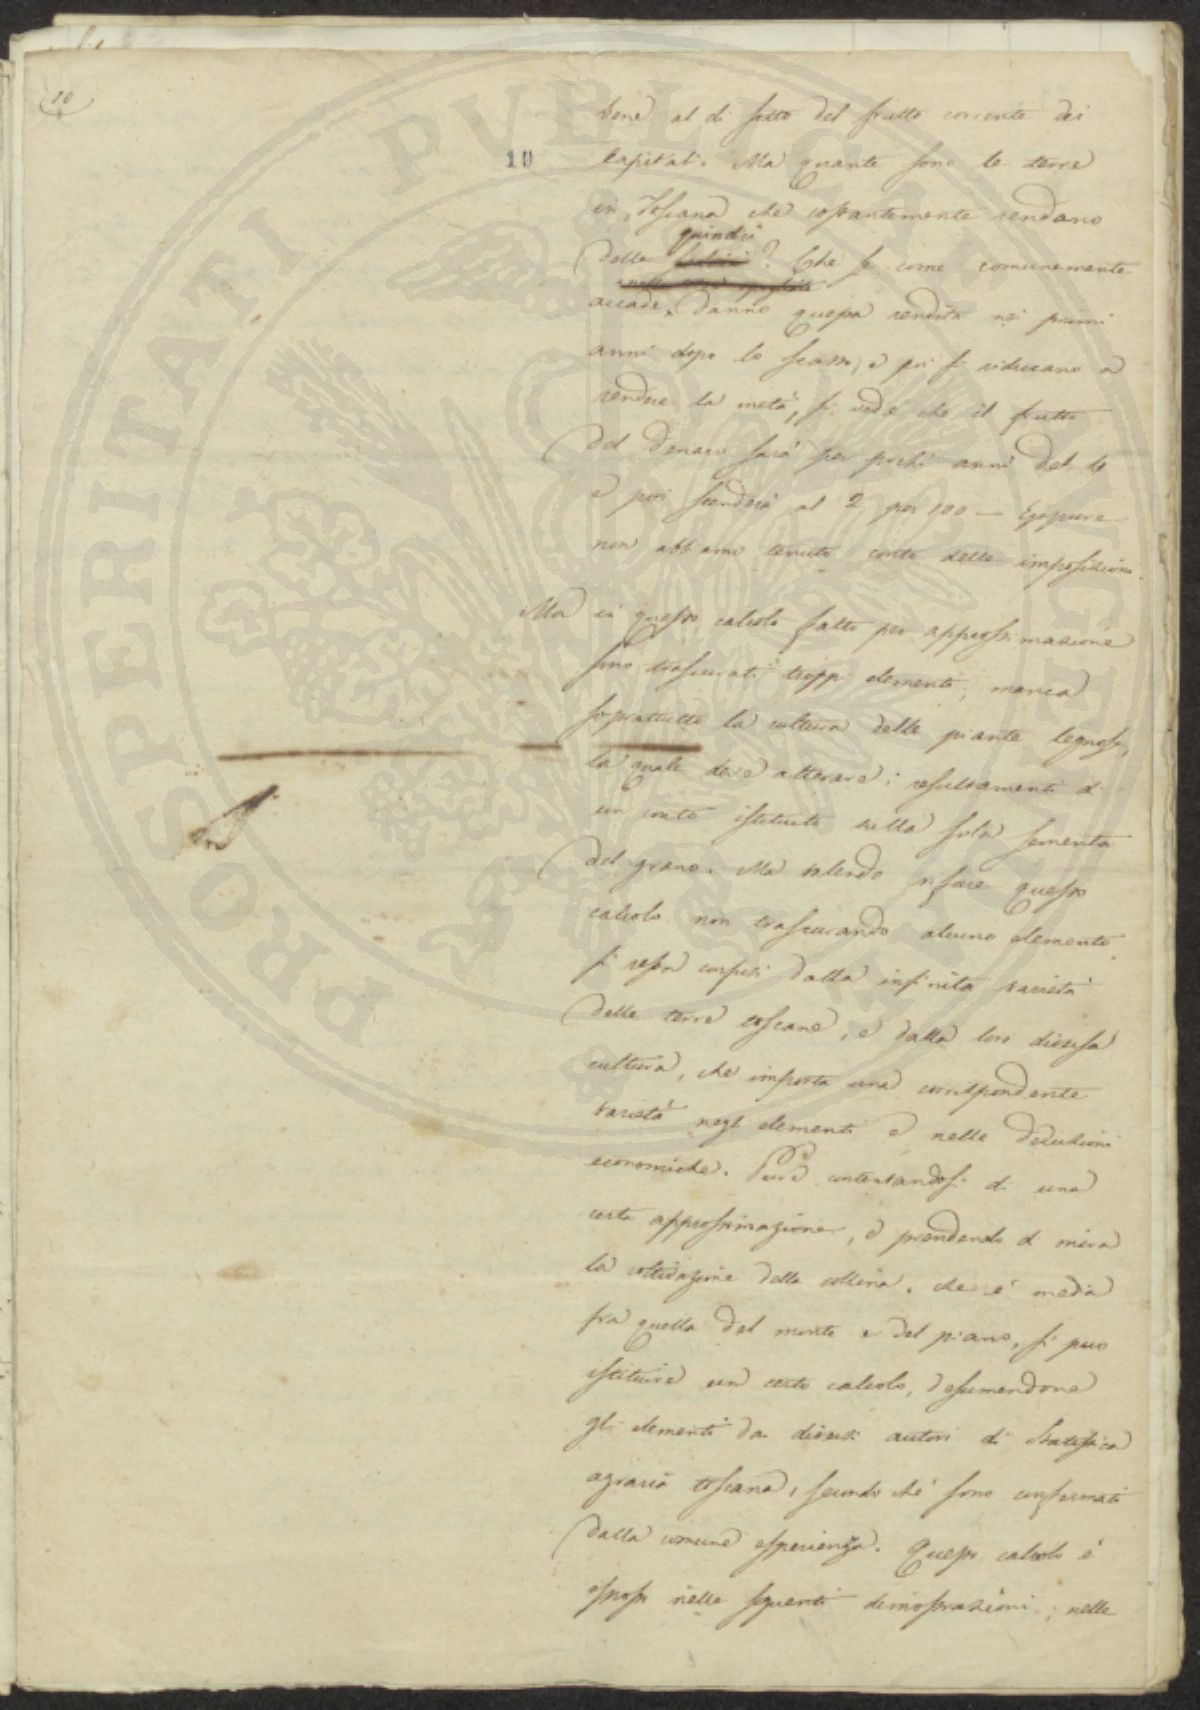 10
10
bene al di sotto del frutto corrente dei
Capitali. Ma quante sono le terre
in Toscana che costantemente rendano
quindici
delle sedici? Che se come comunemente
accade, danno questa rendita nei primi
anni dopo lo scasso, e poi si riducano a
rendere la metà, si vede che il frutto
del denaro sarà per pochi anni del 4
e poi scenderà al 2 per 100 — Eppure
non abbiamo tenuto conto delle imposizioni
Ma in questo calcolo fatto per approssimazione
sono trascurati troppi elementi; manca
soprattutto la cultura delle piante legnose,
la quale deve alterare i resultamenti di
un conto istituito sulla sola sementa
del grano. Ma volendo rifare questo
calcolo non trascurando alcuno elemento
si resta confusi dalla infinita varietà
delle terre toscane, e dalla loro diversa
cultura, che importa una corrispondente
varietà negli elementi e nelle deduzioni
economiche. Pure contentandosi di una
certa approssimazione, e prendendo di mira
la coltivazione della collina, che è media
fra quella del monte e del piano, si può
istituire un certo calcolo, desumendone
gli elementi da diversi autori di Statistica
agraria toscana, secondo che sono confermati
dalla comune esperienza. Questo calcolo è
esposto nelle seguenti dimostrazioni, nelle
PROSPERITATI PVBLICAE AVGENDAE